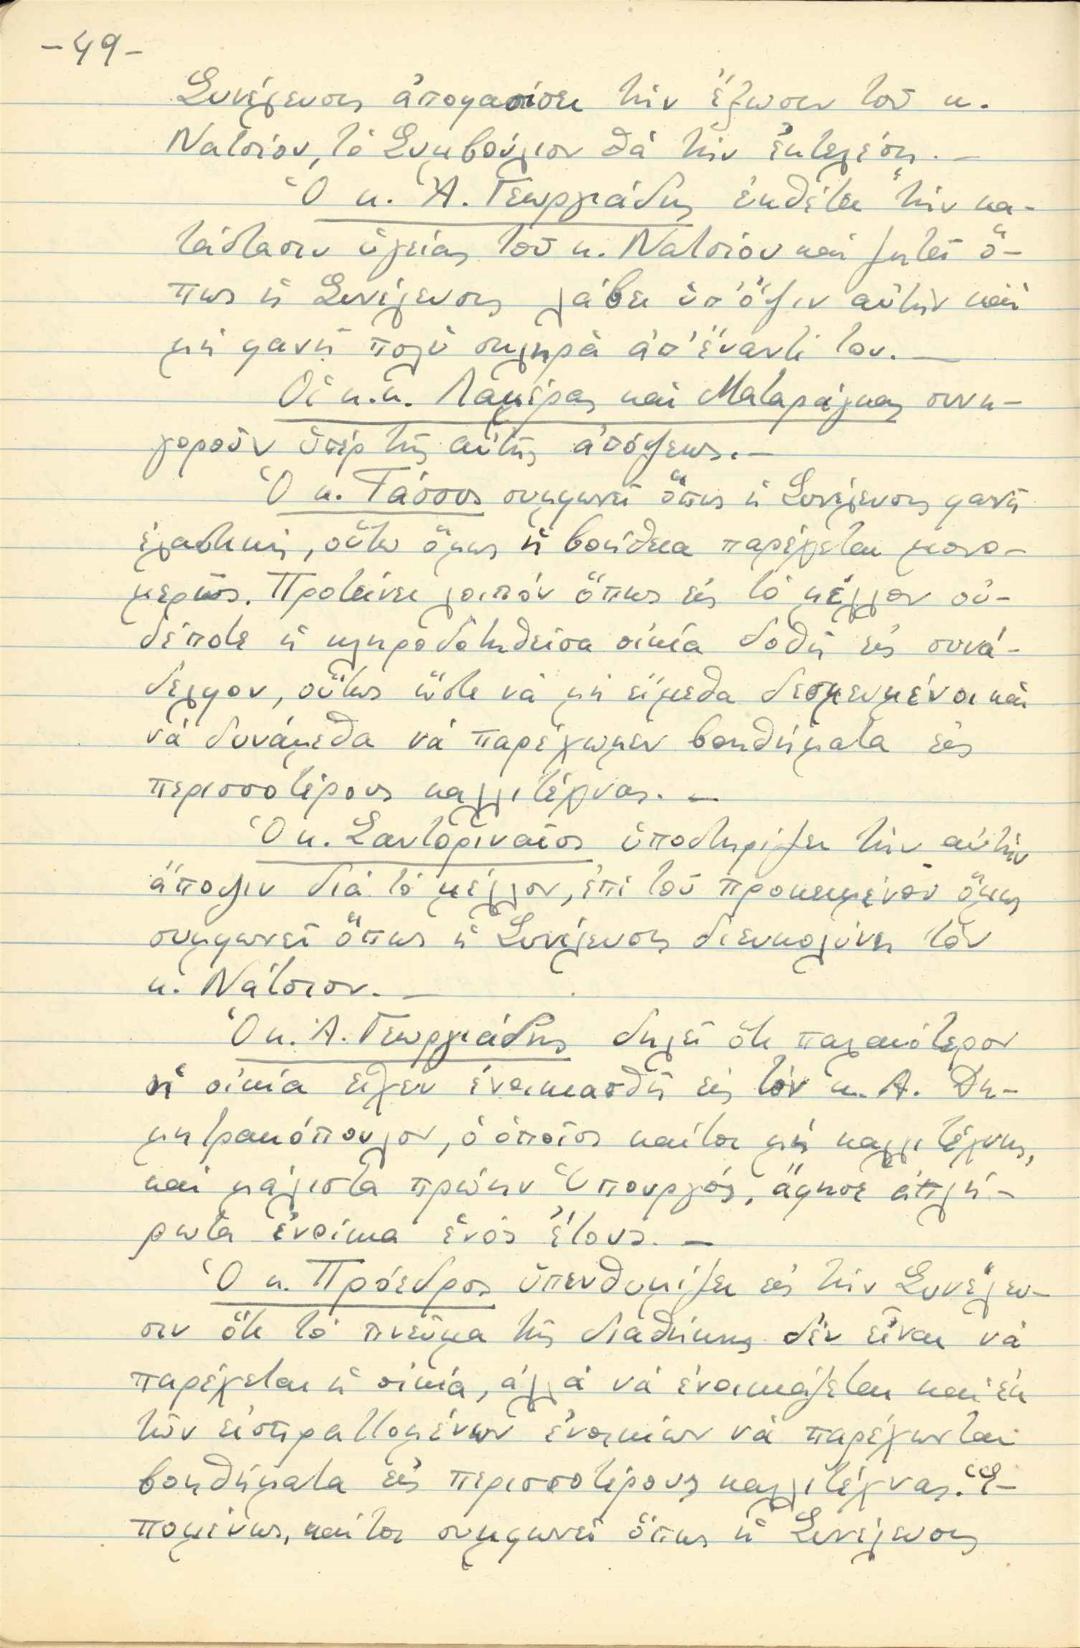 -49-
Συνέλευσις ἀποφασίσει τὴν ἔξωσιν τοῦ κ.
Νατσίου, τὸ Συμβούλιον θὰ τὴν ἐκτελέσῃ.—
Ὁ κ. Ἀ. Γεωργιάδης ἐκθέτει τὴν κα-
τάστασιν ὑγείας τοῦ κ. Νατσίου καὶ ζητεῖ ὅ-
πως ἡ Συνέλευσις λάβει ὑπ' ὄψιν αὐτὴν καὶ
μὴ φανῇ πολὺ σκληρὰ ἀπ' ἔναντί του.—
Οἱ κ.κ. Λαμέρας καὶ Ματαράγκας συνη-
γοροῦν ὑπὲρ τῆς αὐτῆς ἀπόψεως.—
Ὁ κ. Τάσσος συμφωνεῖ ὅπως ἡ Συνέλευσις φανῇ
ἐλαστική, οὕτω ὅμως ἡ βοήθεια παρέχεται μονο-
μερῶς. Προτείνει λοιπόν ὅπως εἰς τὸ μέλλον οὐ-
δέποτε ἡ κληροδοτηθεῖσα οἰκία δοθῇ εἰς συνά-
δελφον, οὕτως ὥστε νὰ μὴ εἴμεθα δεσμευμένοι καὶ
νὰ δυνάμεθα νὰ παρέχωμεν βοηθήματα εἰς
περισσοτέρους καλλιτέχνας.—
Ὁ κ. Σαντοριναῖος ὑποστηρίζει τὴν αὐτὴν
ἄποψιν διὰ τὸ μέλλον, ἐπὶ τοῦ προκειμένου ὅμως
συμφωνεῖ ὅπως ἡ Συνέλευσις διευκολύνει τὸν
κ. Νάτσιον.—
Ὁ κ. Ἀ. Γεωργιάδης δηλεῖ ὅτι παλαιότερον
ἡ οἰκία εἶχεν ἐνοικιασθῆ εἰς τὸν κ. Α. Δη-
μητρακόπουλον, ὁ ὁποῖος καίτοι μὴ καλλιτέχνης,
καὶ μάλιστα πρώην Ὑπουργός, ἄφησε ἀπλή-
ρωτα ἐνοίκια ἑνὸς ἔτους.—
Ὁ κ. Πρόεδρος ὑπενθυμίζει εἰς τὴν Συνέλευ-
σιν ὅτι τὸ πνεῦμα τῆς διαθήκης δὲν εἶναι νὰ
παρέχεται ἡ οἰκία, ἀλλὰ νὰ ἐνοικιάζεται καὶ ἐκ
τῶν εἰσπραττομένων ἐνοικίων νὰ παρέχωνται
βοηθήματα εἰς περισσοτέρους καλλιτέχνας. Ἑ-
πομένως, καίτοι συμφωνεῖ ὅπως ἡ Συνέλευσις